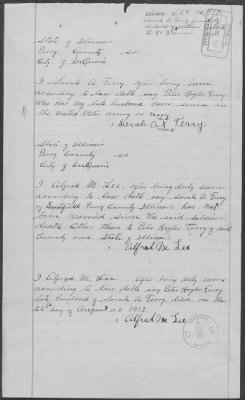 State of Illinois
Perry County ss
City of DuQuoin
I Sarah A. Terry, after being sworn
according to law doth say Peter Hagler Terry
who was my late husband never serve in
the United States army or navy
Sarah A X Terry
mark
State of Illinois
Perry County ss
City of DuQuoin
I Alfred M. Lee, after being duly sworn
according to law doth say Sarah A Terry
of Perry County Illinois has not
been married since the said Soldier
death, other than to Peter Hagler Terry of said
County and State of Illinois
Alfred M Lee
I Alfred M. Lee after being duly sworn
according to law doth say Peter Hagler Terry
late husband of Sarah A Terry, died on the
26th day of August A.D. 1913
Alfred M Lee